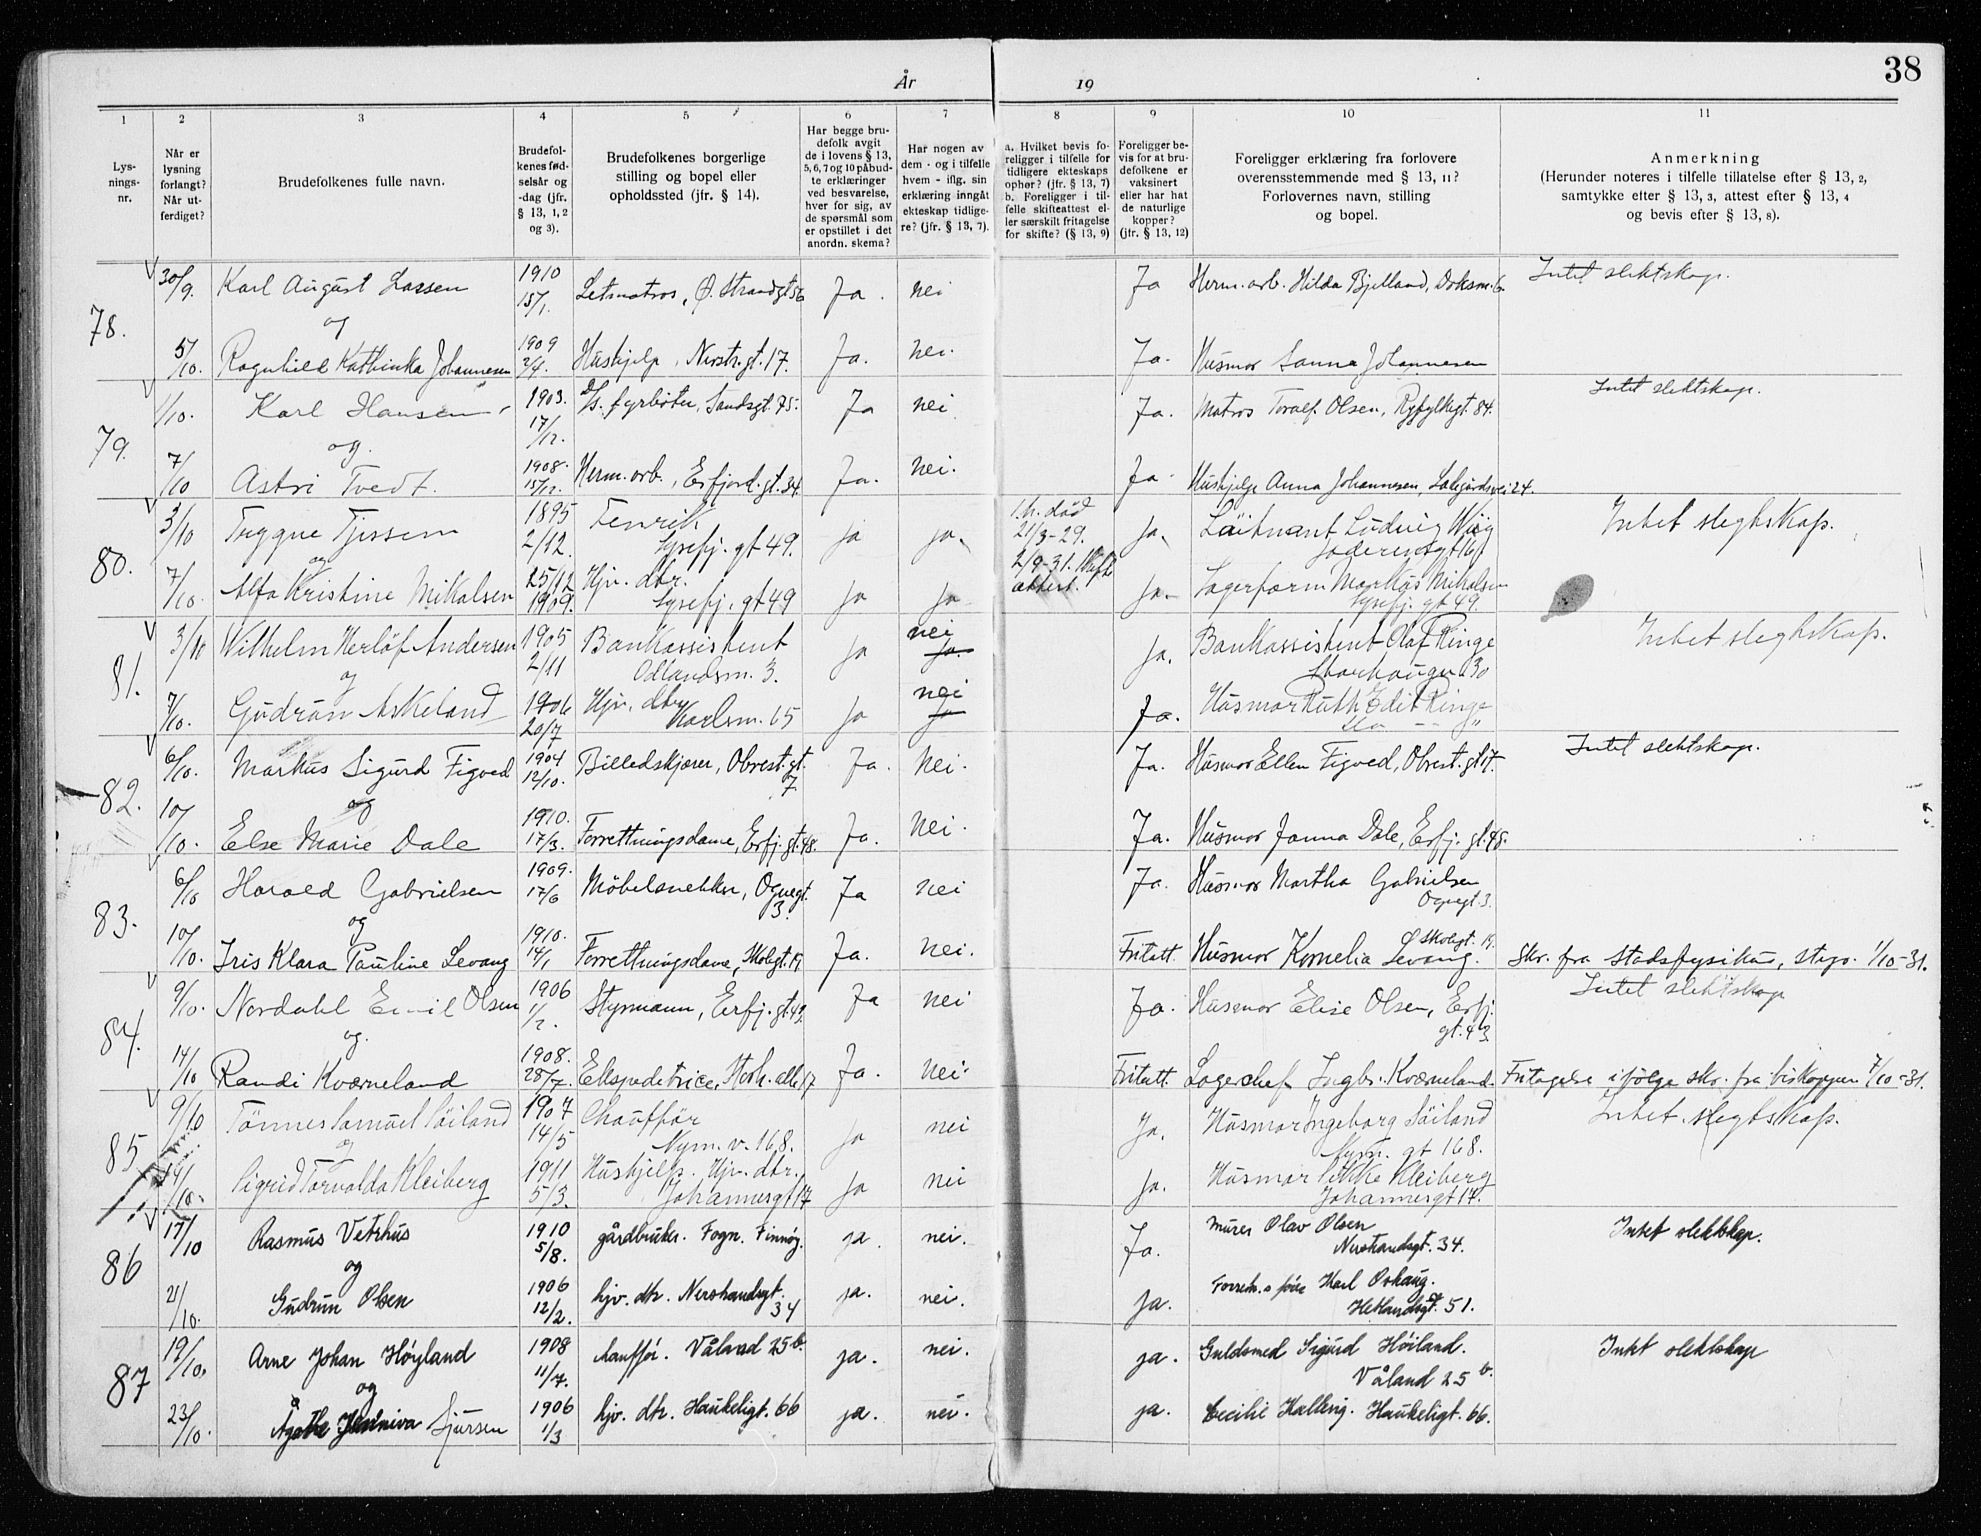 År 19
38
1 2 3 4 5 6 7 8 9 10 11
Lys-
nings-
nr.
Når er
lysning
forlangt?
Når ut-
ferdiget?
Brudefolkenes fulle navn.
Brudefol-
kenes fød-
selsår og
-dag (jfr.
§ 13, 1, 2
og 3).
Brudefolkenes borgerlige
stilling og bopel eller
opholdssted (jfr. § 14).
Har begge bru-
defolk avgit
de i lovens § 13,
5, 6, 7 og 10 påbud-
te erklæringer
ved besvarelse,
hver for sig, av
de spørsmål som
er opstillet i det
anordn. skema?
Har nogen av
dem - og i tilfelle
hvem - iflg. sin
erklæring inngåt
ekteskap tidlige-
re? (jfr. § 13, 7).
a. Hvilket bevis fo-
religger i tilfelle for
tidligere ekteskaps
ophør? (jfr. § 13, 7)
b. Foreligger i til-
felle skifteattest el-
ler særskilt fritagelse
for skifte? (§ 13, 9)
Foreligger be-
vis for at bru-
defolkene er
vaksinert
eller har hat
de naturlige
kopper?
(jfr. § 13, 12)
Foreligger erklæring fra forlovere
overensstemmende med § 13, 11?
Forlovernes navn, stilling
og bopel.
Anmerkning
(Herunder noteres i tilfelle tillatelse efter § 13, 2,
samtykke efter § 13, 3, attest efter § 13, 4
og bevis efter § 13, 8).
78. 30/9. Karl August Lassen 1910 15/1. Letmatros, Ø. Strandgt 56 Ja. nei Ja Herm. arb. Hilda Bjelland, Doksm. 6. Intet slektskap.
og
5/10. Ragnhild Kathinka Johannesen 1909 2/4. Hushjelp, Nerstr. gt. 17. Ja. nei. Ja. Husmor Sanna Johannesen
79. 1/10. Karl Hansen 1903. 17/12. D/S. fyrbøter, Sandsgt. 75. Ja nei Ja. Matros Toralf Olsen, Ryfylkegt. 84. Intet slektskap.
og.
7/10 Astri Tvedt. 1908. 15/12. Herm. arb., Erfjord. gt. 34. Ja. nei. Ja. Hushjelp Anna Johannesen, 24.
80. 3/10 Trygve Tjessem 1895 2/12. Fenrik ja ja. 1. h. død Ja. Løitnant Ludvig Wiig Intet slegtskap.
Lysefj. gt 49. 21/3-29. Jæderensgt 16
og 2/9-31. Skifte
7/10. Alfa Kristine Mikalsen 25/12 1909. Hjv. dtr. ja ja attest. ja. Lagerform. Markus Mikalsen
Lysefj. gt 49 Lysefj. gt 49.
81. 3/10 Wilhelm Herlöf Andersen 1905 2/11 Bankassistent ja nei ja. ja. Bankassistent Olaf Ringe Intet slegtskap.
Odlandsm. 3. Storhaugv. 30
og
7/10. Gudrun Askeland 1906 20/7 Hjv. dtr. ja nei ja Ja. Husmor Ruth Edit Ringe
Karlsm. 15 do — "
82. 6/10. Markus Sigurd Figved 1904 12/10. Billedskjærer, Obrest. gt. 7. Ja. Nei. Ja. Husmor Ellen Figved, Obrest. gt 7. Intet slektskap.
og
10/10. Else Marie Dale 1910. 17/3. Forretningsdame, Erfj. gt. 48. Ja. Nei. Ja. Husmor Janna Dale, Erfj. gt. 48.
83. 6/10 Harald Gabrielsen 1909. 17/6 Möbelsnekker, Ognegt. 3. Ja nei Ja. Husmor Martha Gabrielsen
Ognegt 3.
og
10/10. Iris Klara Pauline Levang 1910. 14/1 Forretningsdame, Skolegt. 19 Ja. Nei. Fritatt. Husmor Kornelia Levang. Ø Skolegt. 19. Skr. fra Stadsfysikus, Stgr. 1/10-31.
84. 9/10. Nordahl Emil Olsen 1906 1/2. Styrmann, Erfj. gt. 43. Ja nei Ja. Husmor Elise Olsen, Erfj. gt. 43. Intet slektskap
og.
14/10 Randi Kværneland 1908. 28/7. Ekspeditrice, Storh. alle 17 Ja. Nei. Fritatt. Lagerchef Ingbr. Kværneland. Fritagelse ifølge skr. fra biskoppen 7/10-31.
85 9/10 Tönnes Samuel Söiland 1907 14/5 Chauffør ja nei Ja. Husmor Ingeborg Söiland Intet slegtskap.
Nym. v. 168. Nym. gt 168.
og
14/10. Sigrid Torvalda Kleiberg 1911 5/3. Hushjelp. Hjv. dtr. ja nei ja. Husmor Kleiberg
Johannesgt 17 Johannesgt 17.
86 17/10 Rasmus Vetrhus 1910 5/8. gårdbruker. Fogn. Finnøy. ja. nei. Ja. Murer Olav Olsen Intet slektskap.
Nerstrandsgt. 34.
og
21/10. Gudrun Olsen 1906 12/2. hjv. dtr. Nerstrandsgt. 34 ja. nei. ja. Karl Oshaug.
Hetlandsgt. 51.
87 19/10. Arne Johan Høyland 1908 11/7. chauffør. Våland 25b. ja. nei. ja. Guldsmed Sigurd Höiland. Intet slektskap
Våland 25b.
og
23/10. Ågathe Sjursen 1906 1/3 hjv. dtr. Haukeligt. 66 ja. nei. ja. Cecilie Kælling. Haukeligt. 66.